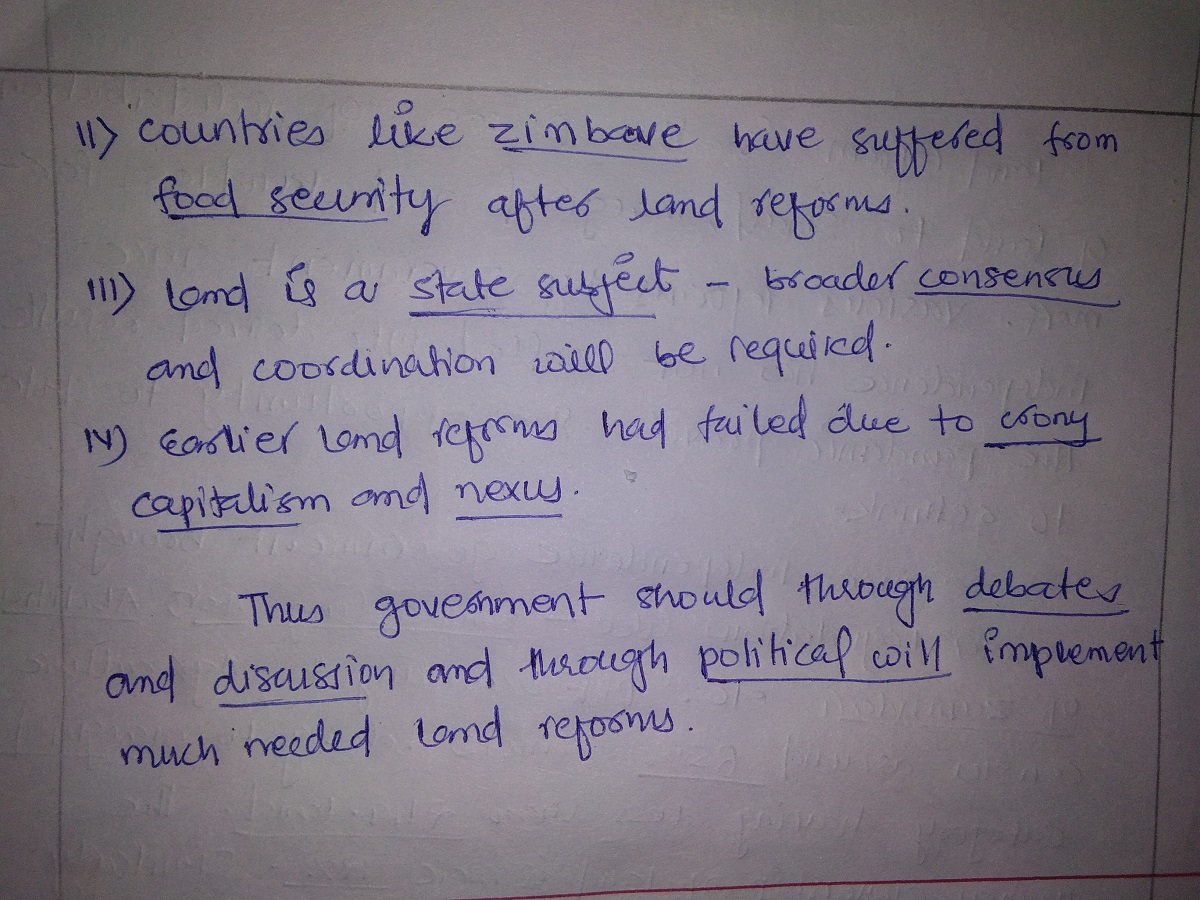 II) countries like zimbave have suffered from
food security after land reforms.
III) Land is a state subject - broader consensus
and coordination will be required.
IV) Earlier land reforms had failed due to crony
capitalism and nexus.
Thus government should through debates
and discussion and through political will implement
much needed land reforms.